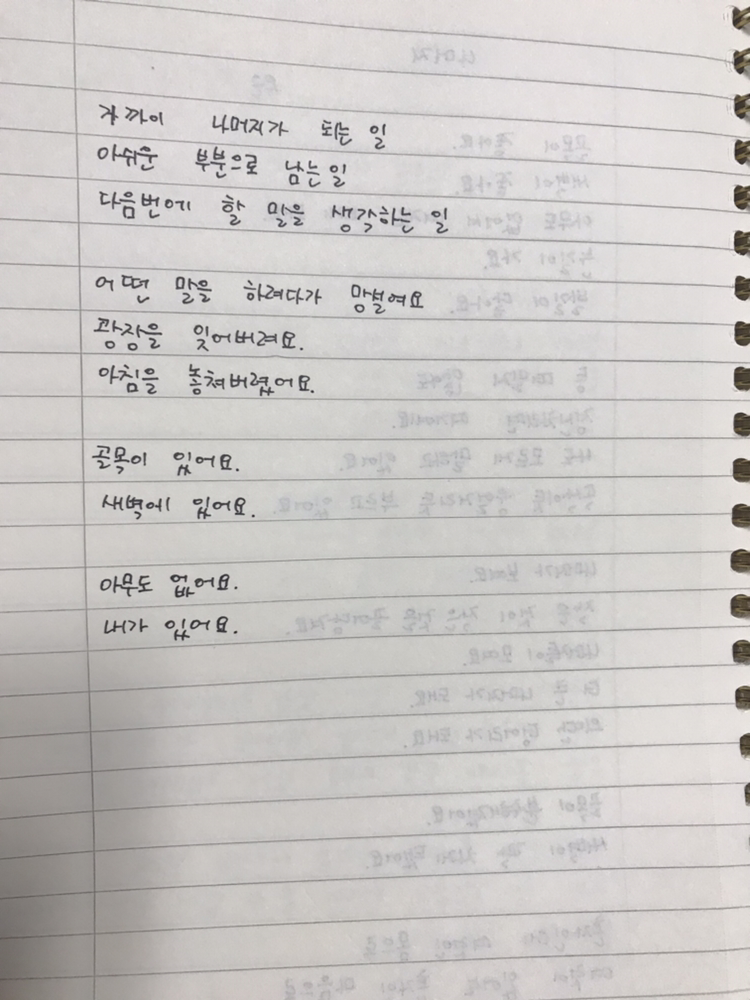 가까이 나머지가 되는 일
아쉬운 부분으로 남는 일
다음번에 할 말을 생각하는 일
어떤 말을 하려다가 망설여요
광장을 잊어버려요.
아침을 놓쳐버렸어요.
골목이 있어요.
새벽에 있어요.
아무도 없어요.
내가 있어요.